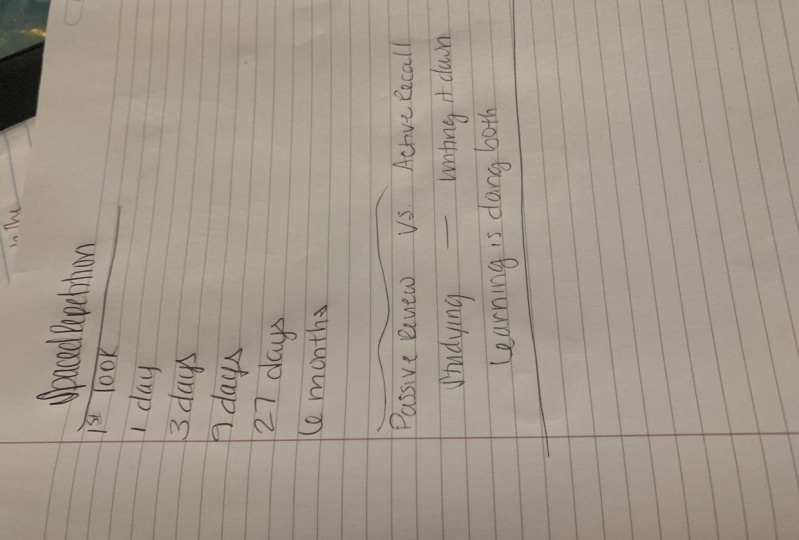 Spaced Repetition
1st look
1 day
3 days
9 days
27 days
6 months
Passive Review vs. Active Recall
Studying — writing it down
Learning is doing both
in the